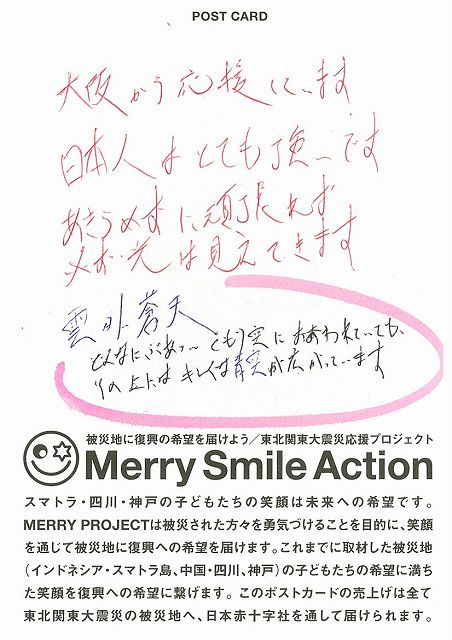 POST CARD
大阪から応援しています
日本人はとても強いです
あきらめずに頑張れば
必ず光は見えてきます
雲外蒼天
どんなにぶあつーくもり空におおわれていても、
その上にはキレイな青空が広がっています
被災地に復興の希望を届けよう／東北関東大震災応援プロジェクト
Merry Smile Action
スマトラ・四川・神戸の子どもたちの笑顔は未来への希望です。
MERRY PROJECTは被災された方々を勇気づけることを目的に、笑顔
を通じて被災地に復興への希望を届けます。これまでに取材した被災地
（インドネシア・スマトラ島、中国・四川、神戸）の子どもたちの希望に満ち
た笑顔を復興への希望に繋げます。このポストカードの売上げは全て
東北関東大震災の被災地へ、日本赤十字社を通して届けられます。